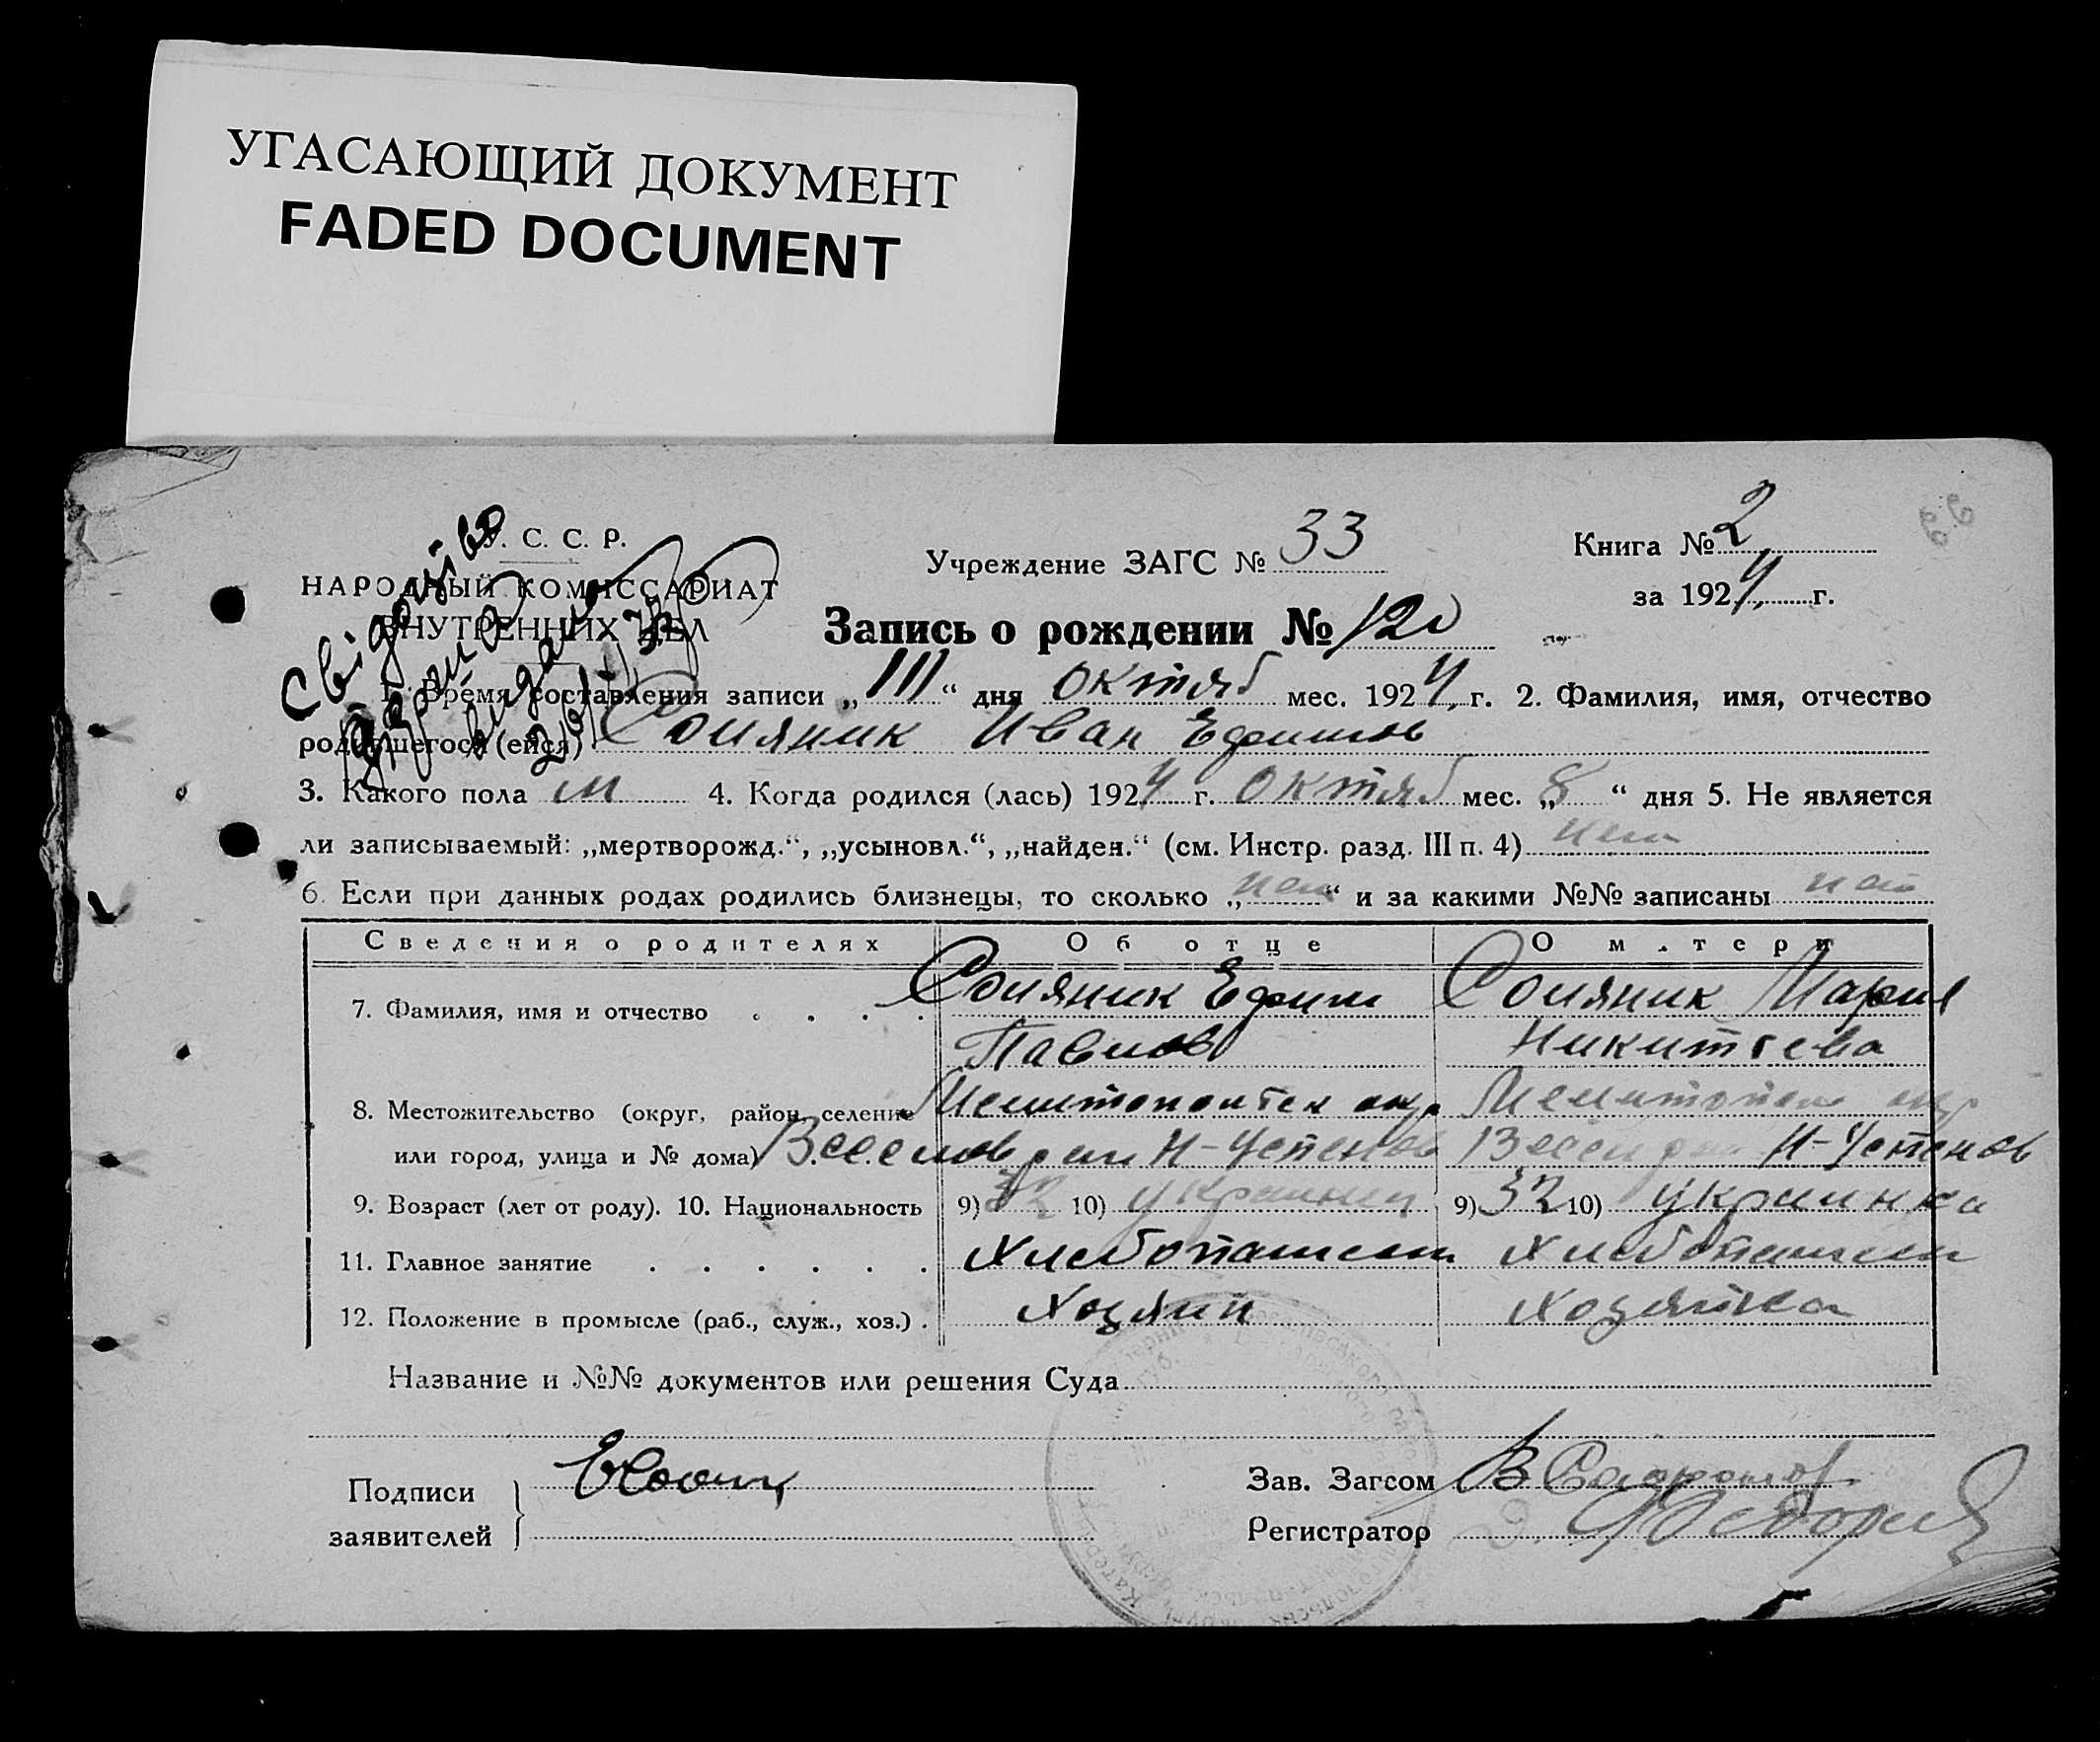 УГАСАЮЩИЙ ДОКУМЕНТ
FADED DOCUMENT
У. С. С. Р.
НАРОДНЫЙ КОМИССАРИАТ
ВНУТРЕННИХ ДЕЛ
Учреждение ЗАГС № 33
Книга № 2
за 1924 г.
Запись о рождении № 120
1. Время составления записи „ “ дня октяб мес. 1924 г. 2. Фамилия, имя, отчество
родившегося (ейся) Соляник Иван Ефимов
3. Какого пола м 4. Когда родился (лась) 1924 г. октяб мес. „8“ дня 5. Не является
ли записываемый: „мертворожд.“, „усыновл.“, „найден.“ (см. Инстр. разд. III п. 4) нет
6. Если при данных родах родились близнецы, то сколько „нет“ и за какими №№ записаны нет
Сведения о родителях Об отце О матери
7. Фамилия, имя и отчество Соляник Ефим Соляник Мария
Павлов Никитева
8. Местожительство (округ, район, селение Мелитопольск окр. Мелитополь окр
или город, улица и № дома) Веселов рай Н-Успенов Весел р Н-Успенов
9. Возраст (лет от роду). 10. Национальность 9) 32 10) украинец 9) 32 10) украинка
11. Главное занятие Хлебопашест Хлебопашест
12. Положение в промысле (раб., служ., хоз.) Хозяин Хозяйка
Название и №№ документов или решения Суда
Подписи
заявителей
Зав. Загсом
Регистратор